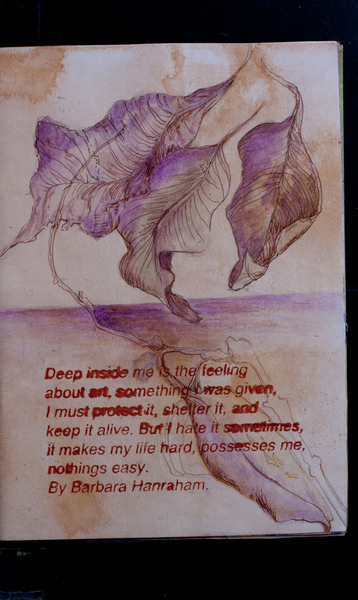 Deep inside me is the feeling
about art, something I was given,
I must protect it, shelter it, and
keep it alive. But I hate it sometimes,
it makes my life hard, possesses me,
nothings easy.
By Barbara Hanraham.